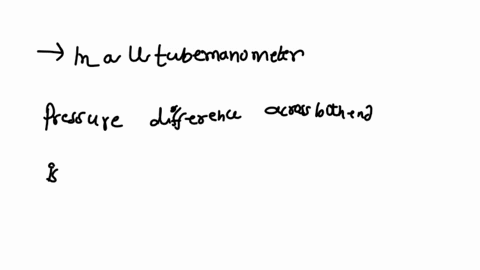 → In a U tube manometer
Pressure difference across both end
is